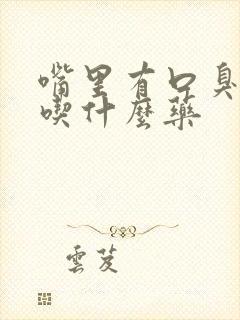 嘴里有口臭
喫什麼藥
雲芨